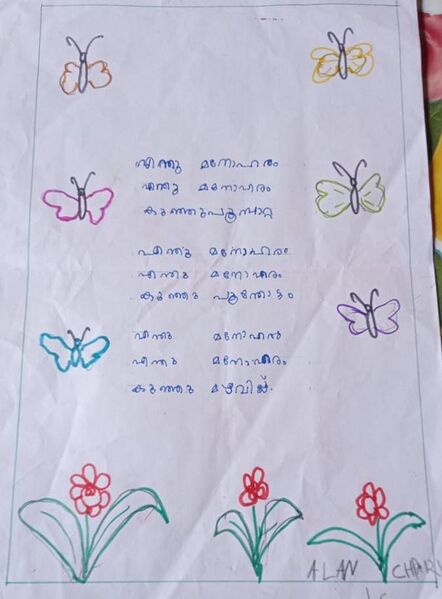 എന്തു മനോഹരം
എന്തു മനോഹരം
കുഞ്ഞുപൂമ്പാറ്റ
എന്തു മനോഹരം
എന്തു മനോഹരം
കുഞ്ഞു പൂന്തോട്ടം
എന്തു മനോഹരം
എന്തു മനോഹരം
കുഞ്ഞു മഴവില്ല്.
ALAN